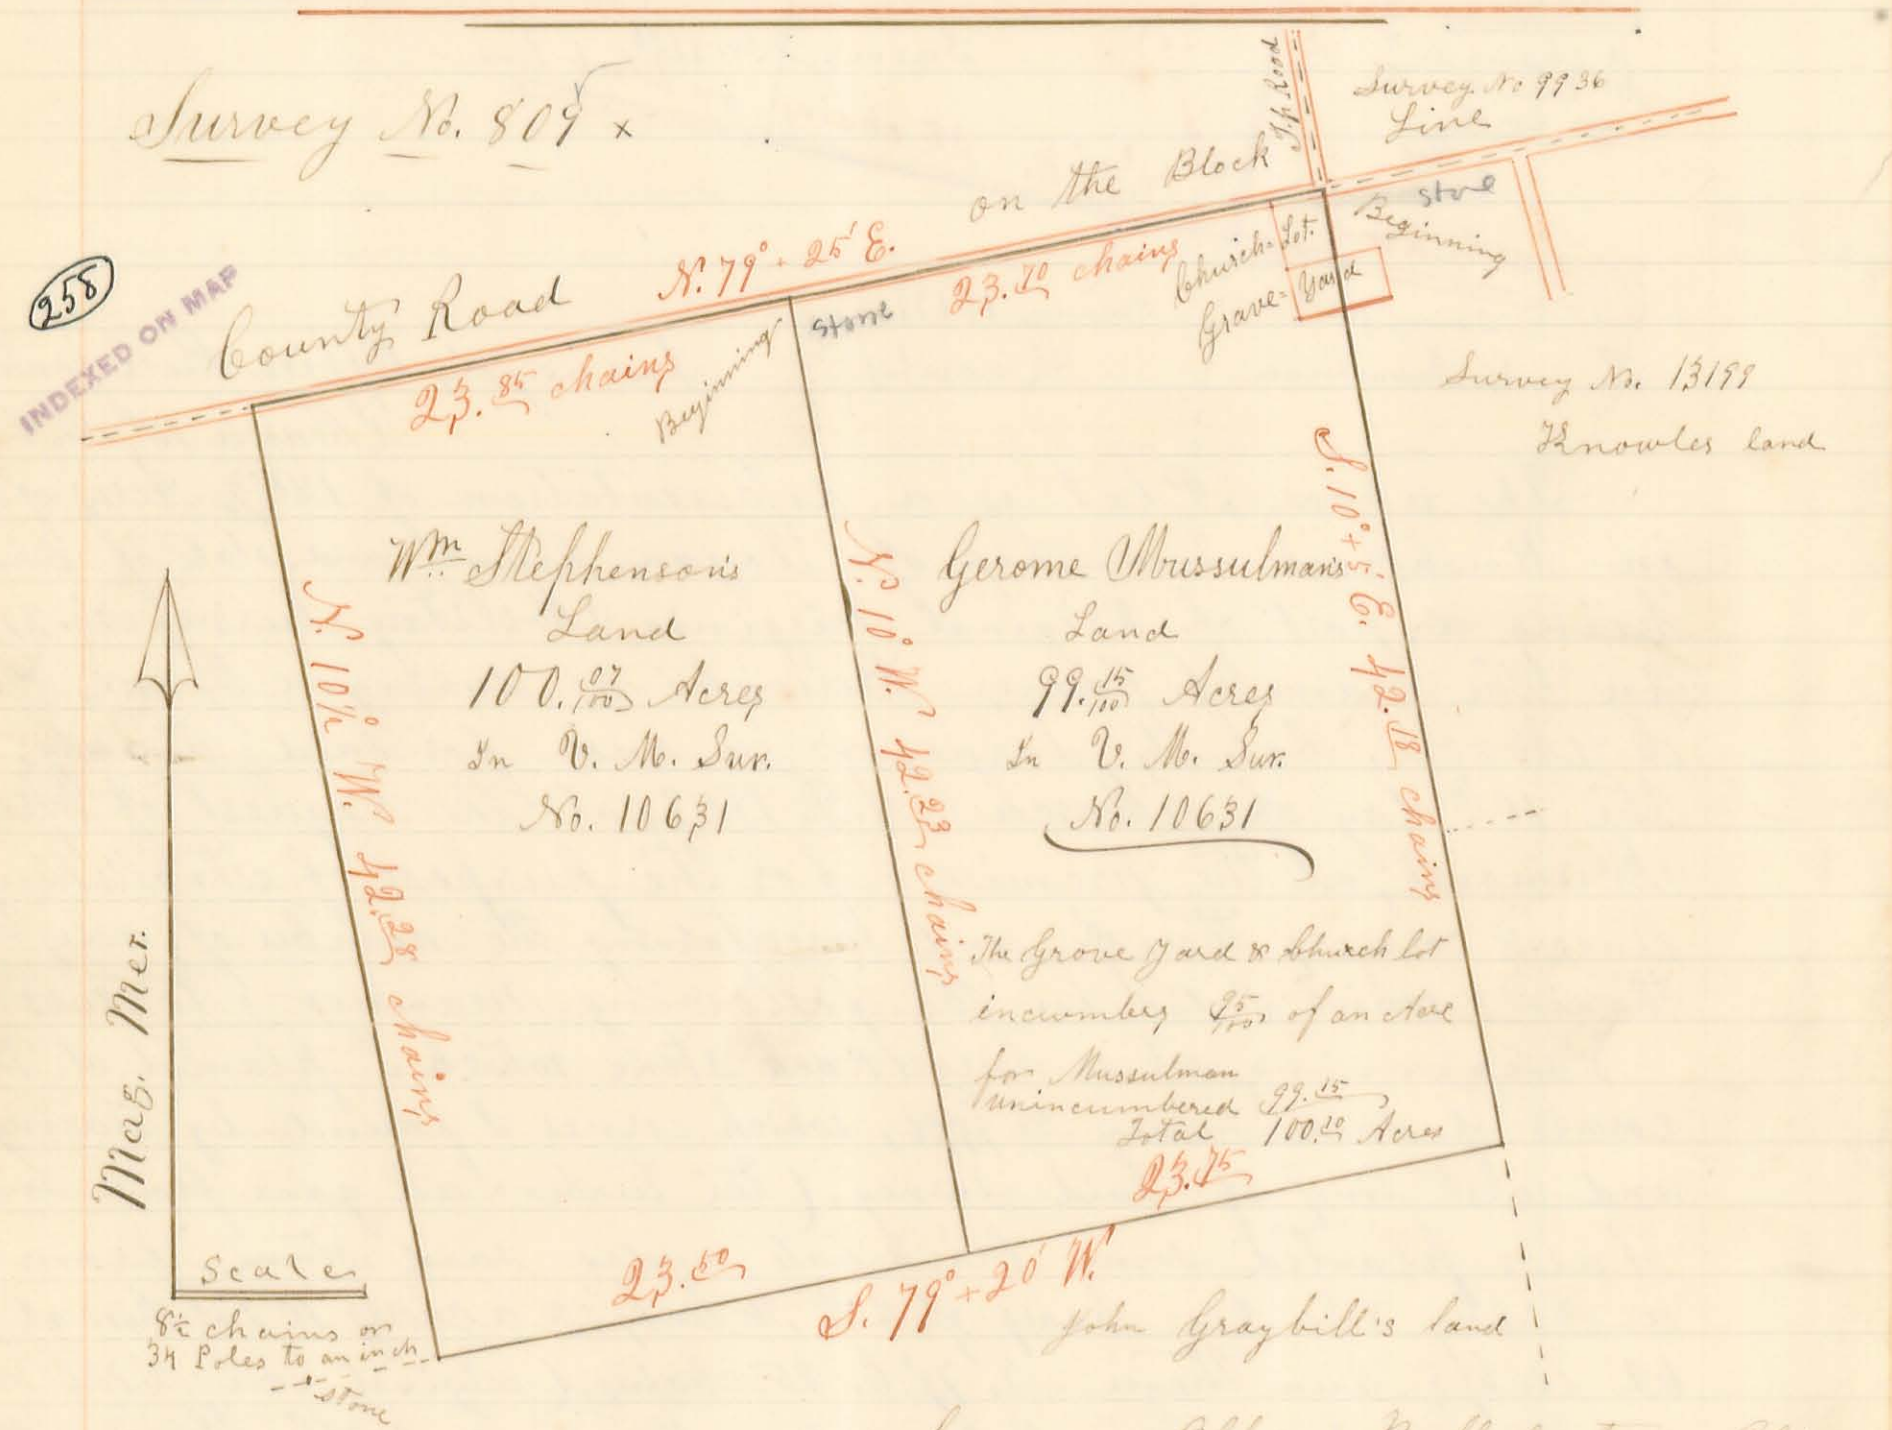 Survey No. 809 x
258
INDEXED ON MAP
County Road
N. 79° + 25' E.
on the Block
T.p. Road
Survey No 9936
Line
stone
Beginning
23.85 chains
Beginning
stone
23.70 chains
Church= Lot.
Grave= Yard
Survey No. 13199
Knowles land
Wm Stephenson's
Land
100. 07/100 Acres
In V. M. Sur.
No. 10631
Gerome Mussulman's
Land
99. 15/100 Acres
In V. M. Sur.
No. 10631
N. 10½° W. 42.28 chains
N. 10° W. 42.23 chains
S. 10° + 5' E. 42.18 chains
The Grave Yard & Church lot
incumbers 95/100 of an Acre
for Mussulman
unincumbered 99.15
Total 100.10 Acres
23.75
23.50
S. 79° + 20' W.
John Graybill's land
Mag. Mer.
Scale
8½ chains or
34 Poles to an inch
stone